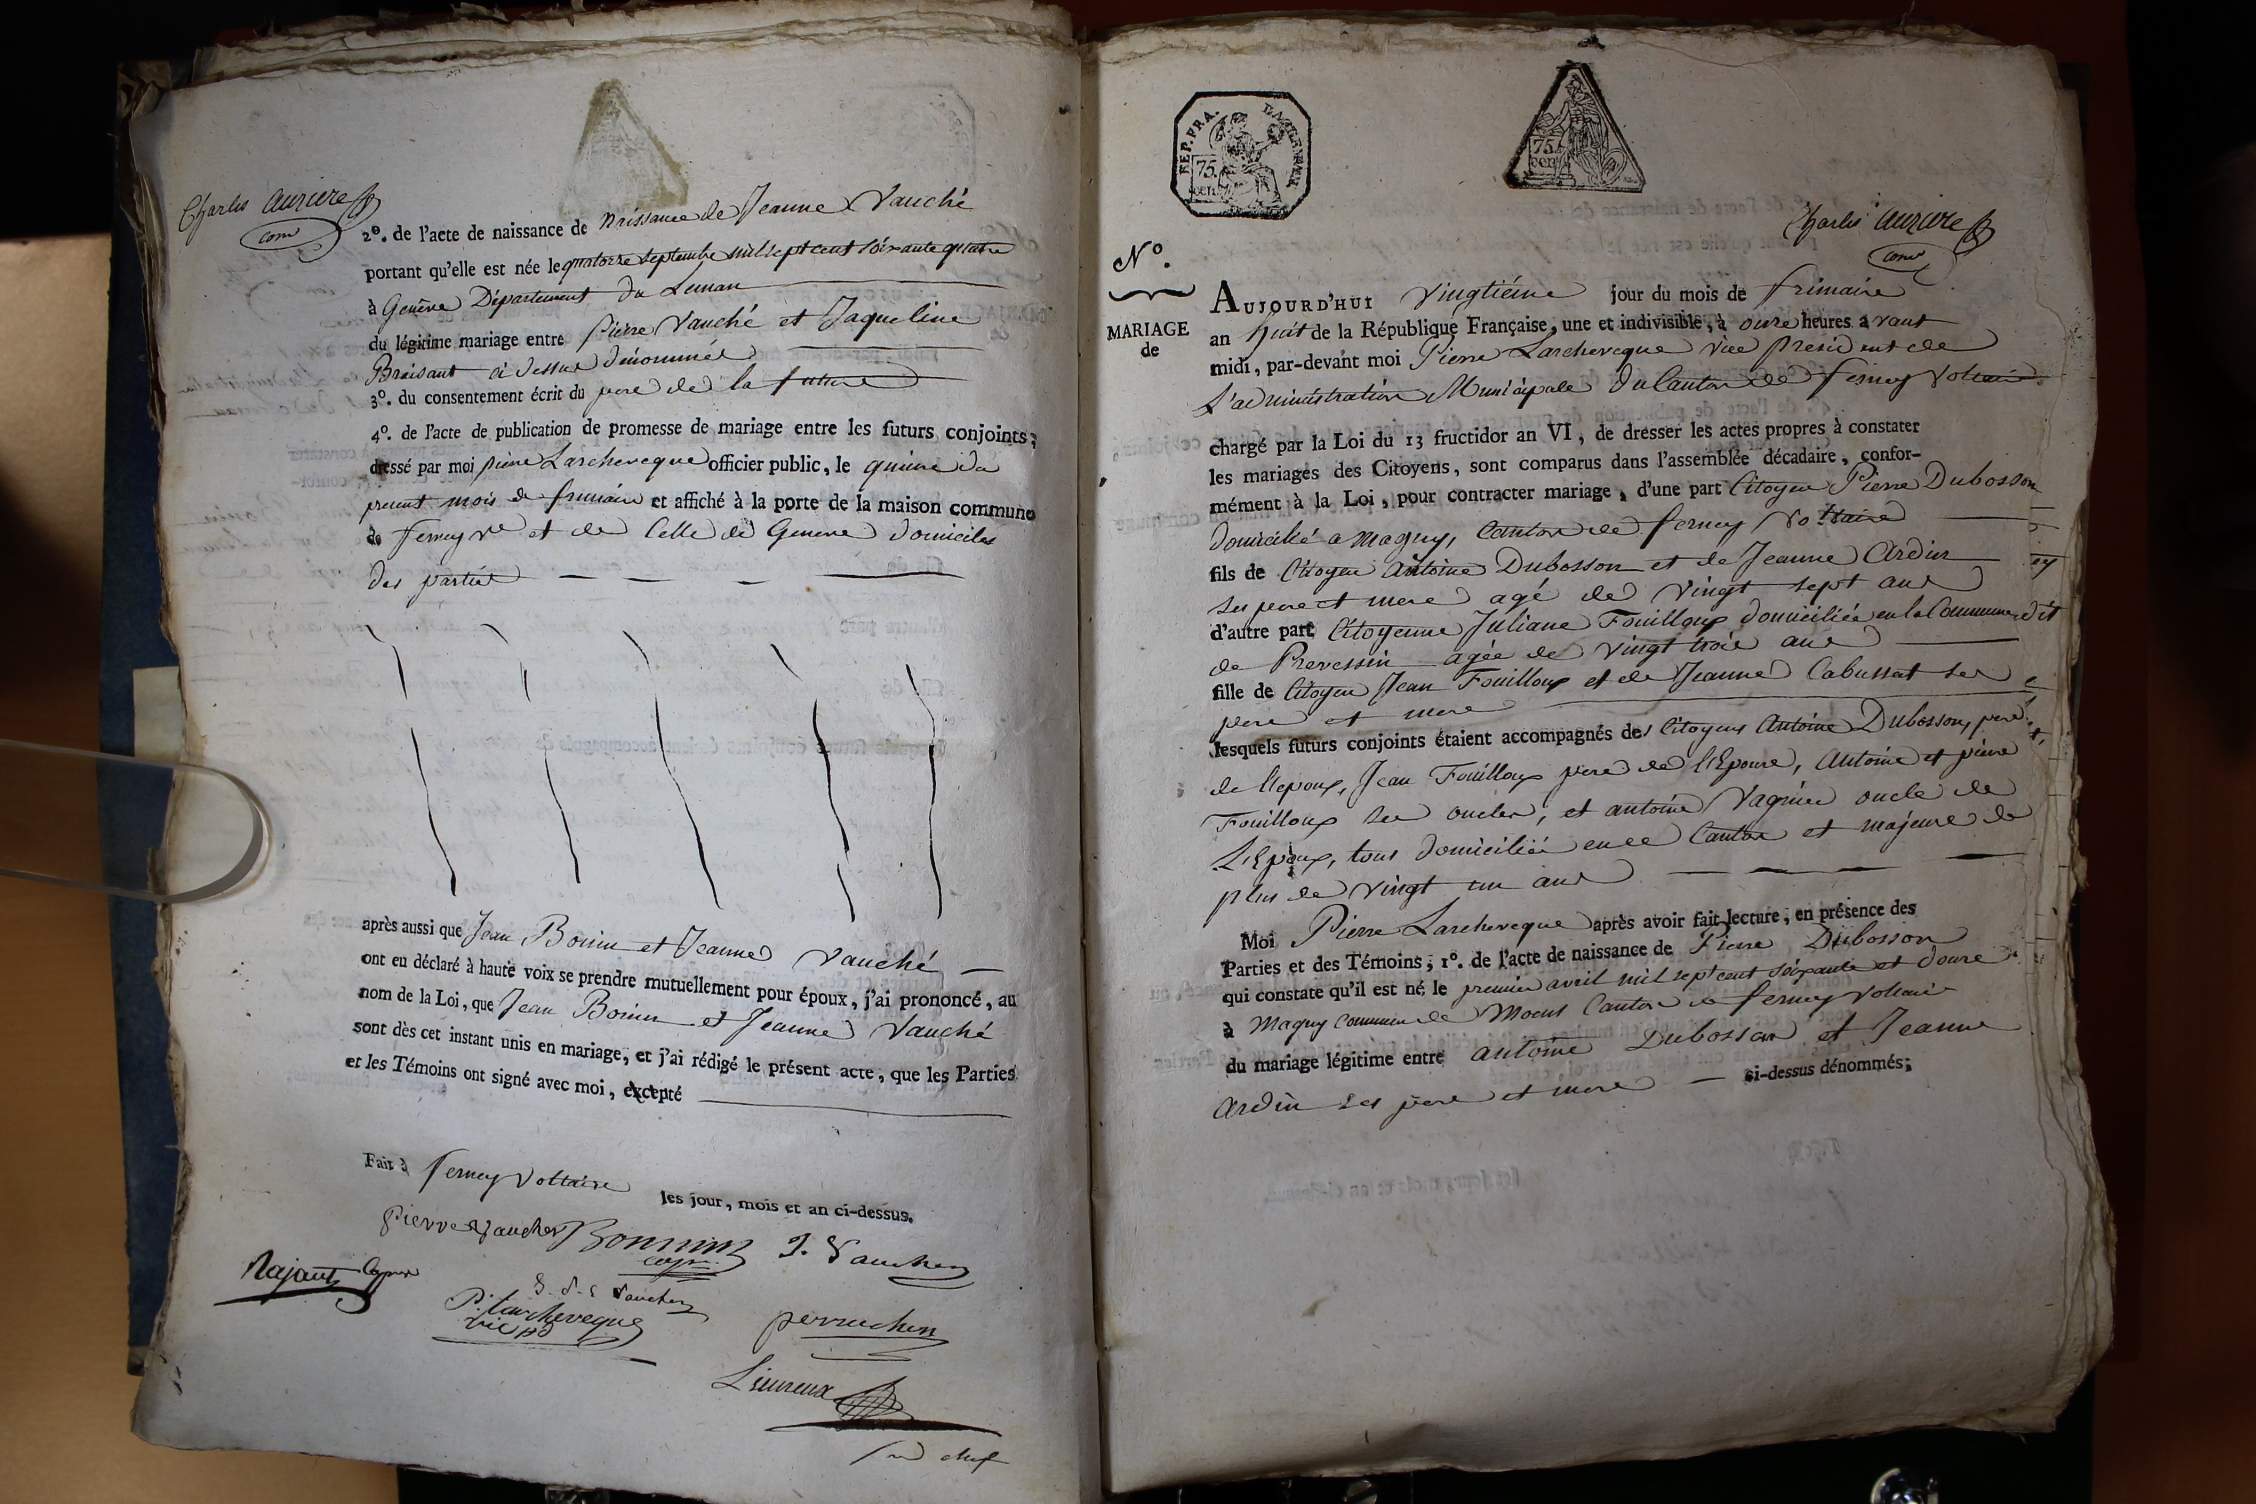 Charles auriere
com
2º. de l'acte de naissance de Naissance de Jeanne Vauché
portant qu'elle est née le quatorze septembre mil sept cent soixante quatre
à Genêve Département du Leman
du légitime mariage entre Pierre Vauché et Jaqueline
Braisant ci dessus dénommés
3º. du consentement écrit du pere de la future
4º. de l'acte de publication de promesse de mariage entre les futurs conjoints;
dressé par moi pierre Larcheveque officier public, le quinze du
present mois de frimaire et affiché à la porte de la maison commune
de ferney Vre et de Celle de Geneve domiciles
des parties
après aussi que Jean Bonin et Jeanne Vauché
ont eu déclaré à haute voix se prendre mutuellement pour époux, j'ai prononcé, au
nom de la Loi, que Jean Bonin et Jeanne Vauché
sont dès cet instant unis en mariage, et j'ai rédigé le présent acte, que les Parties
et les Témoins ont signé avec moi, excepté
Fait à ferney Voltaire les jour, mois et an ci-dessus.
Pierre Vaucher Bonnin J. Vaucher
Najant
Vaucher
P. Larcheveque
vice pd
perrachon
Lieureux
chef
REP. FRA.
75.
cen.
75.
cen
Charles auriere
com
Nº.
MARIAGE
de
AUJOURD'HUI vingtiéme jour du mois de frimaire
an huit de la République Française, une et indivisible, à onze heures avant
midi, par-devant moi Pierre Larcheveque vice president de
L'administration Municipale du Canton de ferney Voltaire
chargé par la Loi du 13 fructidor an VI, de dresser les actes propres à constater
les mariages des Citoyens, sont comparus dans l'assemblée décadaire, confor-
mément à la Loi, pour contracter mariage, d'une part Citoyen Pierre Dubosson
domicilié a magny, Canton de ferney Voltaire
fils de Citoyen Antoine Dubosson et de Jeanne Ardin
ses pere et mere agé de vingt sept ans
d'autre part Citoyenne Juliane Fouilloux domiciliée en la Commune dit
de Prevessin agée de vingt trois ans
fille de Citoyen Jean Fouilloux et de Jeanne Cabussat ses
pere et mere
lesquels futurs conjoints étaient accompagnés des Citoyens Antoine Dubosson, pere
de l'epoux, Jean Fouilloux pere de l'Epouse, Antoine et pierre
Fouilloux ses oncles, et antoine Vagnier oncle de
L'Epoux, tous domiciliés en ce Canton et majeurs de
plus de vingt un ans
Moi Pierre Larcheveque après avoir fait lecture, en présence des
Parties et des Témoins, 1º. de l'acte de naissance de Pierre Dubosson
qui constate qu'il est né le premier avril mil sept cent soixante et douze
à Magny commune de Moens Canton de ferney Voltaire
du mariage légitime entre antoine Dubosson et Jeanne
Ardin ses pere et mere ci-dessus dénommés;